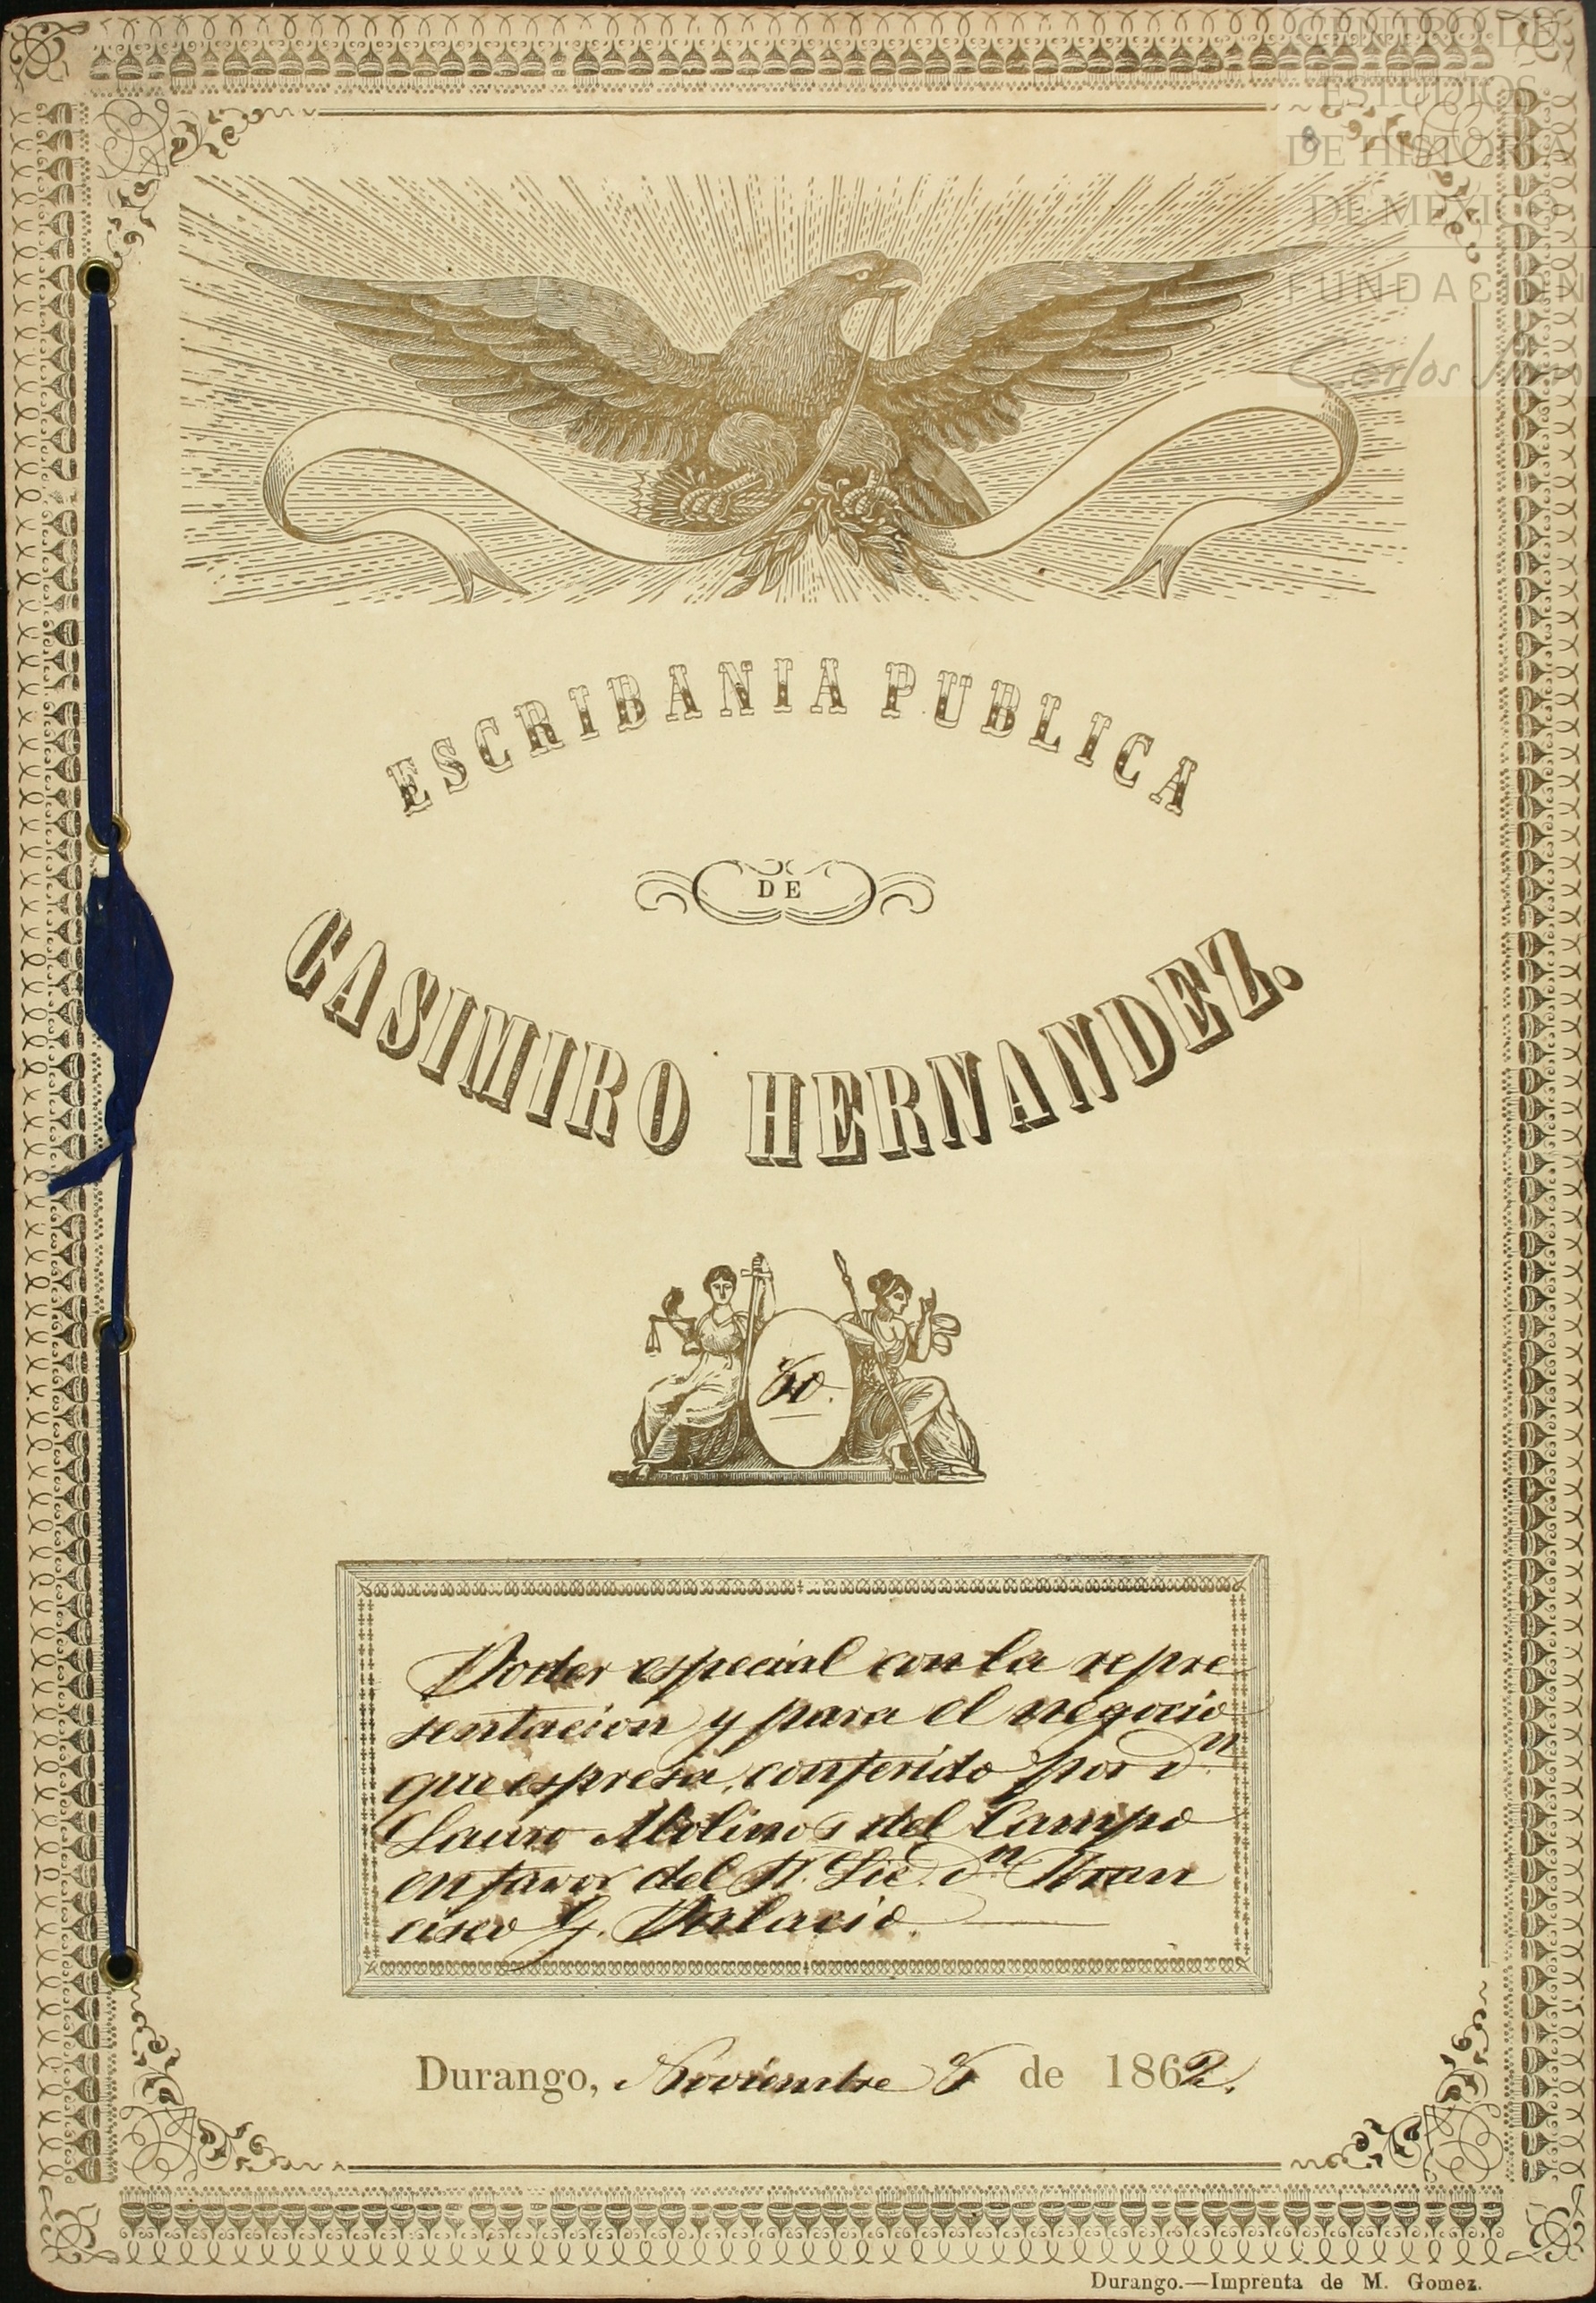 CENTRO DE
ESTUDIOS
DE HISTORIA
DE MEXICO
FUNDACIÓN
Carlos Slim
ESCRIBANIA PUBLICA
DE
CASIMIRO HERNANDEZ.
Poder especial con la repre
sentacion y para el negocio
que espresa, conferido por Dn.
Lauro Molinos del Campo
en favor del S. Lic. Dn. Fran
cisco G. Palacio.
Durango, Noviembre 8 de 1862.
Durango.—Imprenta de M. Gomez.